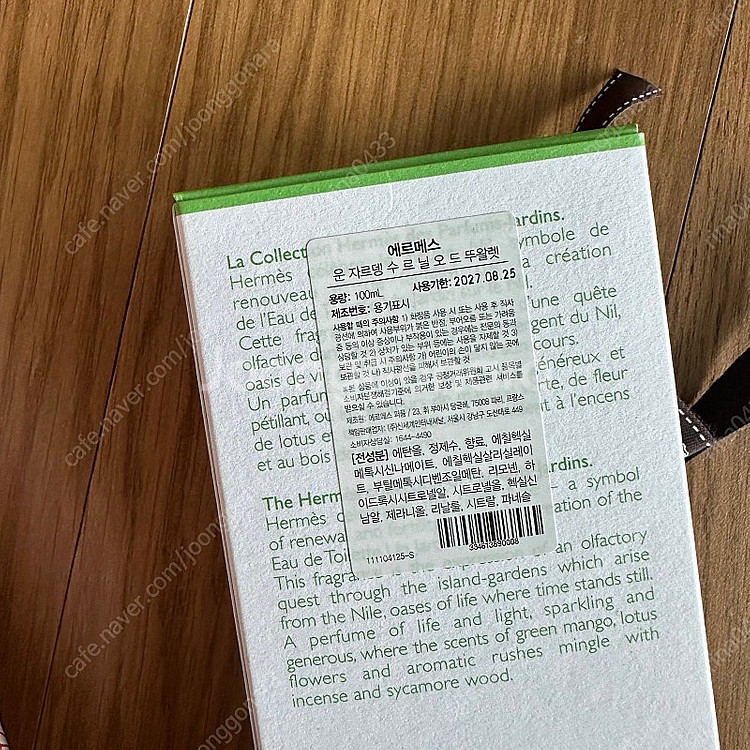 La Collect
ardins.
Hermès
symbole de
renouveau
a création
de l'Eau de
Cette frag
'une quête
olfactive d
gent du Nil,
oasis de vi
cours.
Un parfum
énéreux et
pétillant, ou
rte, de fleur
de lotus et
t à l'encens
et au bois
에르메스
운 자르뎅 수 르 닐 오 드 뚜왈렛
용량: 100mL
사용기한: 2027.08.25
제조번호: 용기표시
사용할 때의 주의사항 1) 화장품 사용 시 또는 사용 후 직사
광선에 의하여 사용부위가 붉은 반점, 부어오름 또는 가려움
증 등의 이상 증상이나 부작용이 있는 경우에는 전문의 등과
상담할 것 2) 상처가 있는 부위 등에는 사용을 자제할 것 3)
보관 및 취급 시 주의사항 가) 어린이의 손이 닿지 않는 곳에
보관할 것 나) 직사광선을 피해서 보관할 것
※본 상품에 이상이 있을 경우 공정거래위원회 고시 품목별
소비자분쟁해결기준에 의거한 보상 및 제품관련 서비스를
받으실 수 있습니다.
제조원: 에르메스 퍼퓸 / 23, 휘 부아시 당글레, 75008 파리, 프랑스
책임판매업자: (주)신세계인터내셔날, 서울시 강남구 도산대로 449
소비자상담실: 1644-4490
[전성분] 에탄올, 정제수, 향료, 에칠헥실
메톡시신나메이트, 에칠헥실살리실레이
트, 부틸메톡시디벤조일메탄, 리모넨, 하
이드록시시트로넬알, 시트로넬올, 헥실신
남알, 제라니올, 리날룰, 시트랄, 파네솔
111104125-S
The Herm
ardins.
Hermès
– a symbol
of renewa
ation of the
Eau de Toi
This fragra
an olfactory
quest through the island-gardens which arise
from the Nile, oases of life where time stands still.
A perfume of life and light, sparkling and
generous, where the scents of green mango, lotus
flowers and aromatic rushes mingle with
incense and sycamore wood.
cafe.naver.com/joonggonara